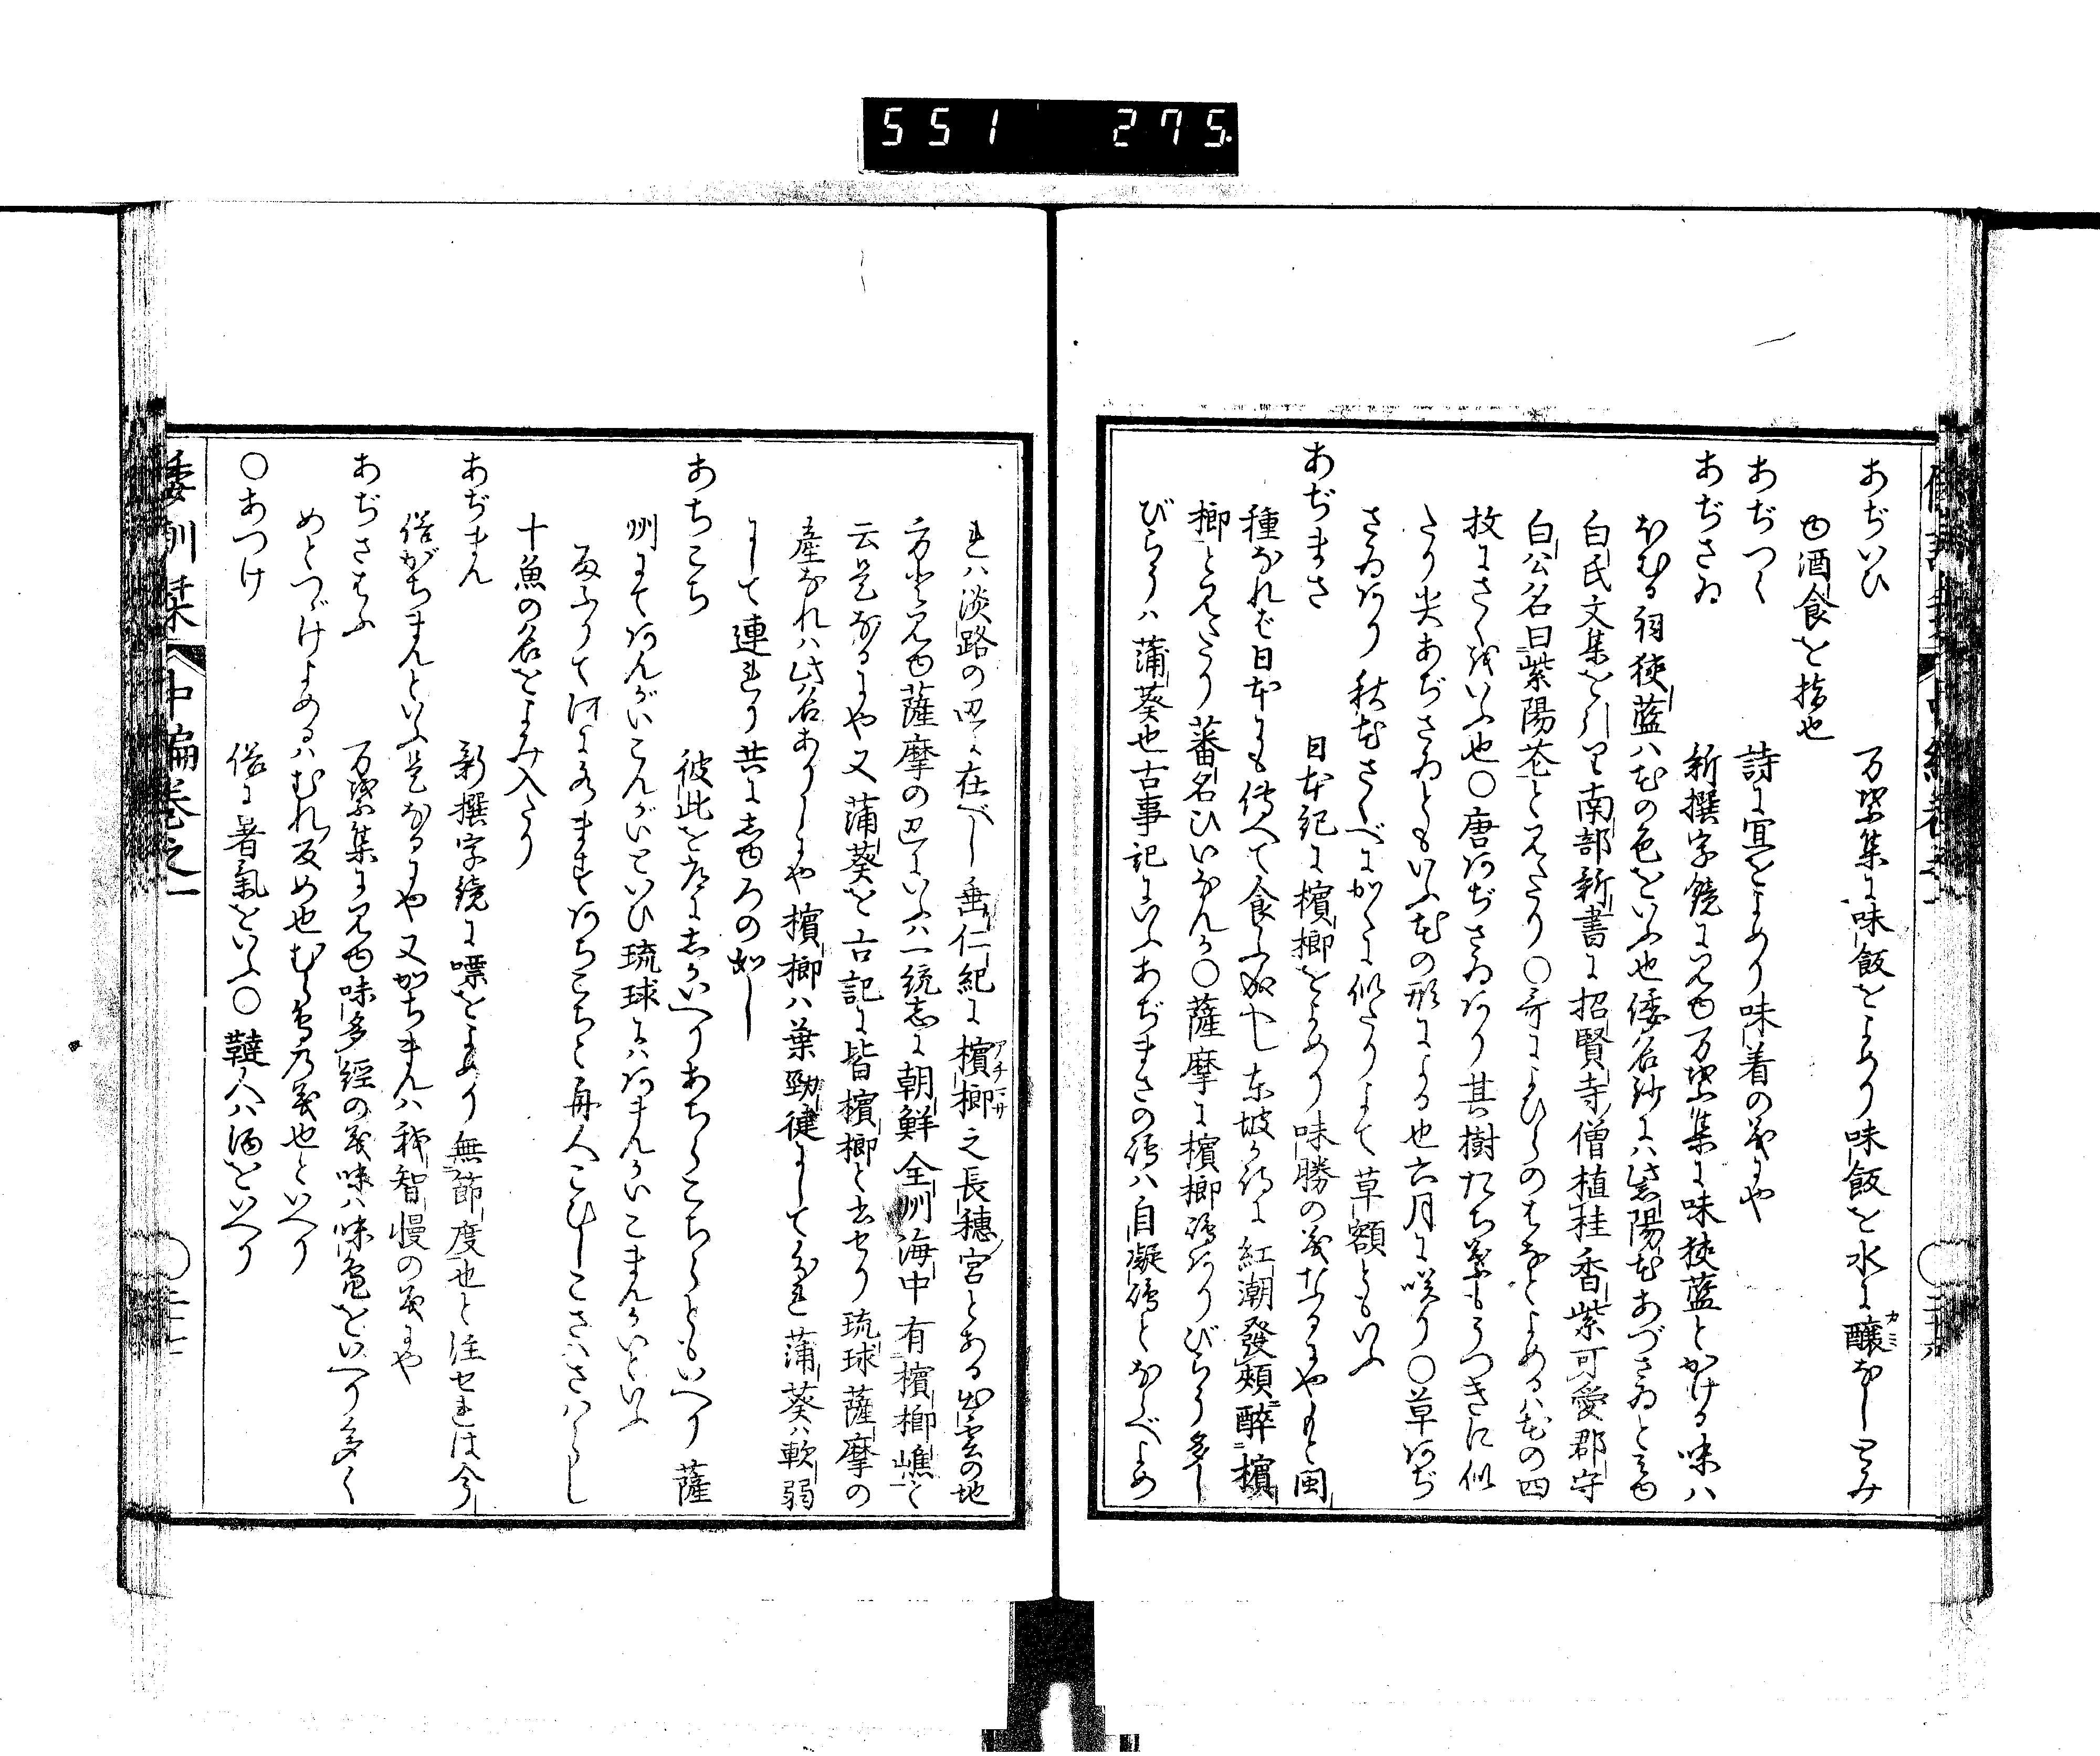 551 275
あぢいひ　万葉集に味飯をよめり味飯を水に醸なしとみ
ゆ酒食を指也
あぢつく　詩に宜をよめり味着の義にや
あぢさゐ　新撰字鏡に見ゆ万葉集に味狭藍とかける味ハ
ほむる詞狭藍ハ花の色をいふ也倭名鈔にハ紫陽花あづさゐとみゆ
白氏文集を引り南部新書に招賢寺僧植桂香紫可愛郡守
白公名曰紫陽花と見えたり〇哥によひらのはなとよめるハ花の四
枚にさくをいふ也〇唐あぢさゐあり其樹たち葉もうつきに似
たり尖あぢさゐともいふ花の形による也六月に咲り〇草あぢ
さゐあり秋花さくべにがくに似たりよて草額ともいふ
あぢまさ　日本紀に檳榔をよめり味勝の義なるにやもと閩
種なれど日本にも傳へて食ふ也東坡か詩に紅潮發頰醉檳
榔と見えたり蕃名ひいなんか〇薩摩に檳榔嶋ありびらう多し
びらうハ蒲葵也古事記にいふあぢまさの嶋ハ自凝嶋とならべよめ
れハ淡路の辺に在べし垂仁紀に檳榔之長穂宮とある出雲の地
方と見ゆ薩摩の辺にいふハ一統志に朝鮮全州海中有檳榔嶕と
云是なるにや又蒲葵を古記に皆檳榔と書せり琉球薩摩の
産なれハ此名ありしにや檳榔ハ葉勁健にしてわれ蒲葵ハ軟弱
にして連れり共にしゆろの如し
あちこち　彼此を常にしかいへりあちらこちらともいへり薩
州にてあんがいこんがいといひ琉球にハあまんかいこまんかいといふ
夜ふりて河に多ますあちこちと舟人こひしこさハさハらし
十魚の名をよみ入たり
あぢまん　新撰字鏡に嘌をよめり無節度也と注せれは今
俗がちまんといふ是なるにや又がちまんハ我智慢の義にや
あぢさはふ　万葉集に見ゆ味多經の義味ハ味鳧をいへり多く
めとつゞけよめるハむれ反め也むら鳥乃義也といへり
〇あつけ　俗に暑氣をいふ〇韃人ハ酒をいへり
倭訓栞　中編巻之一　〇二十七